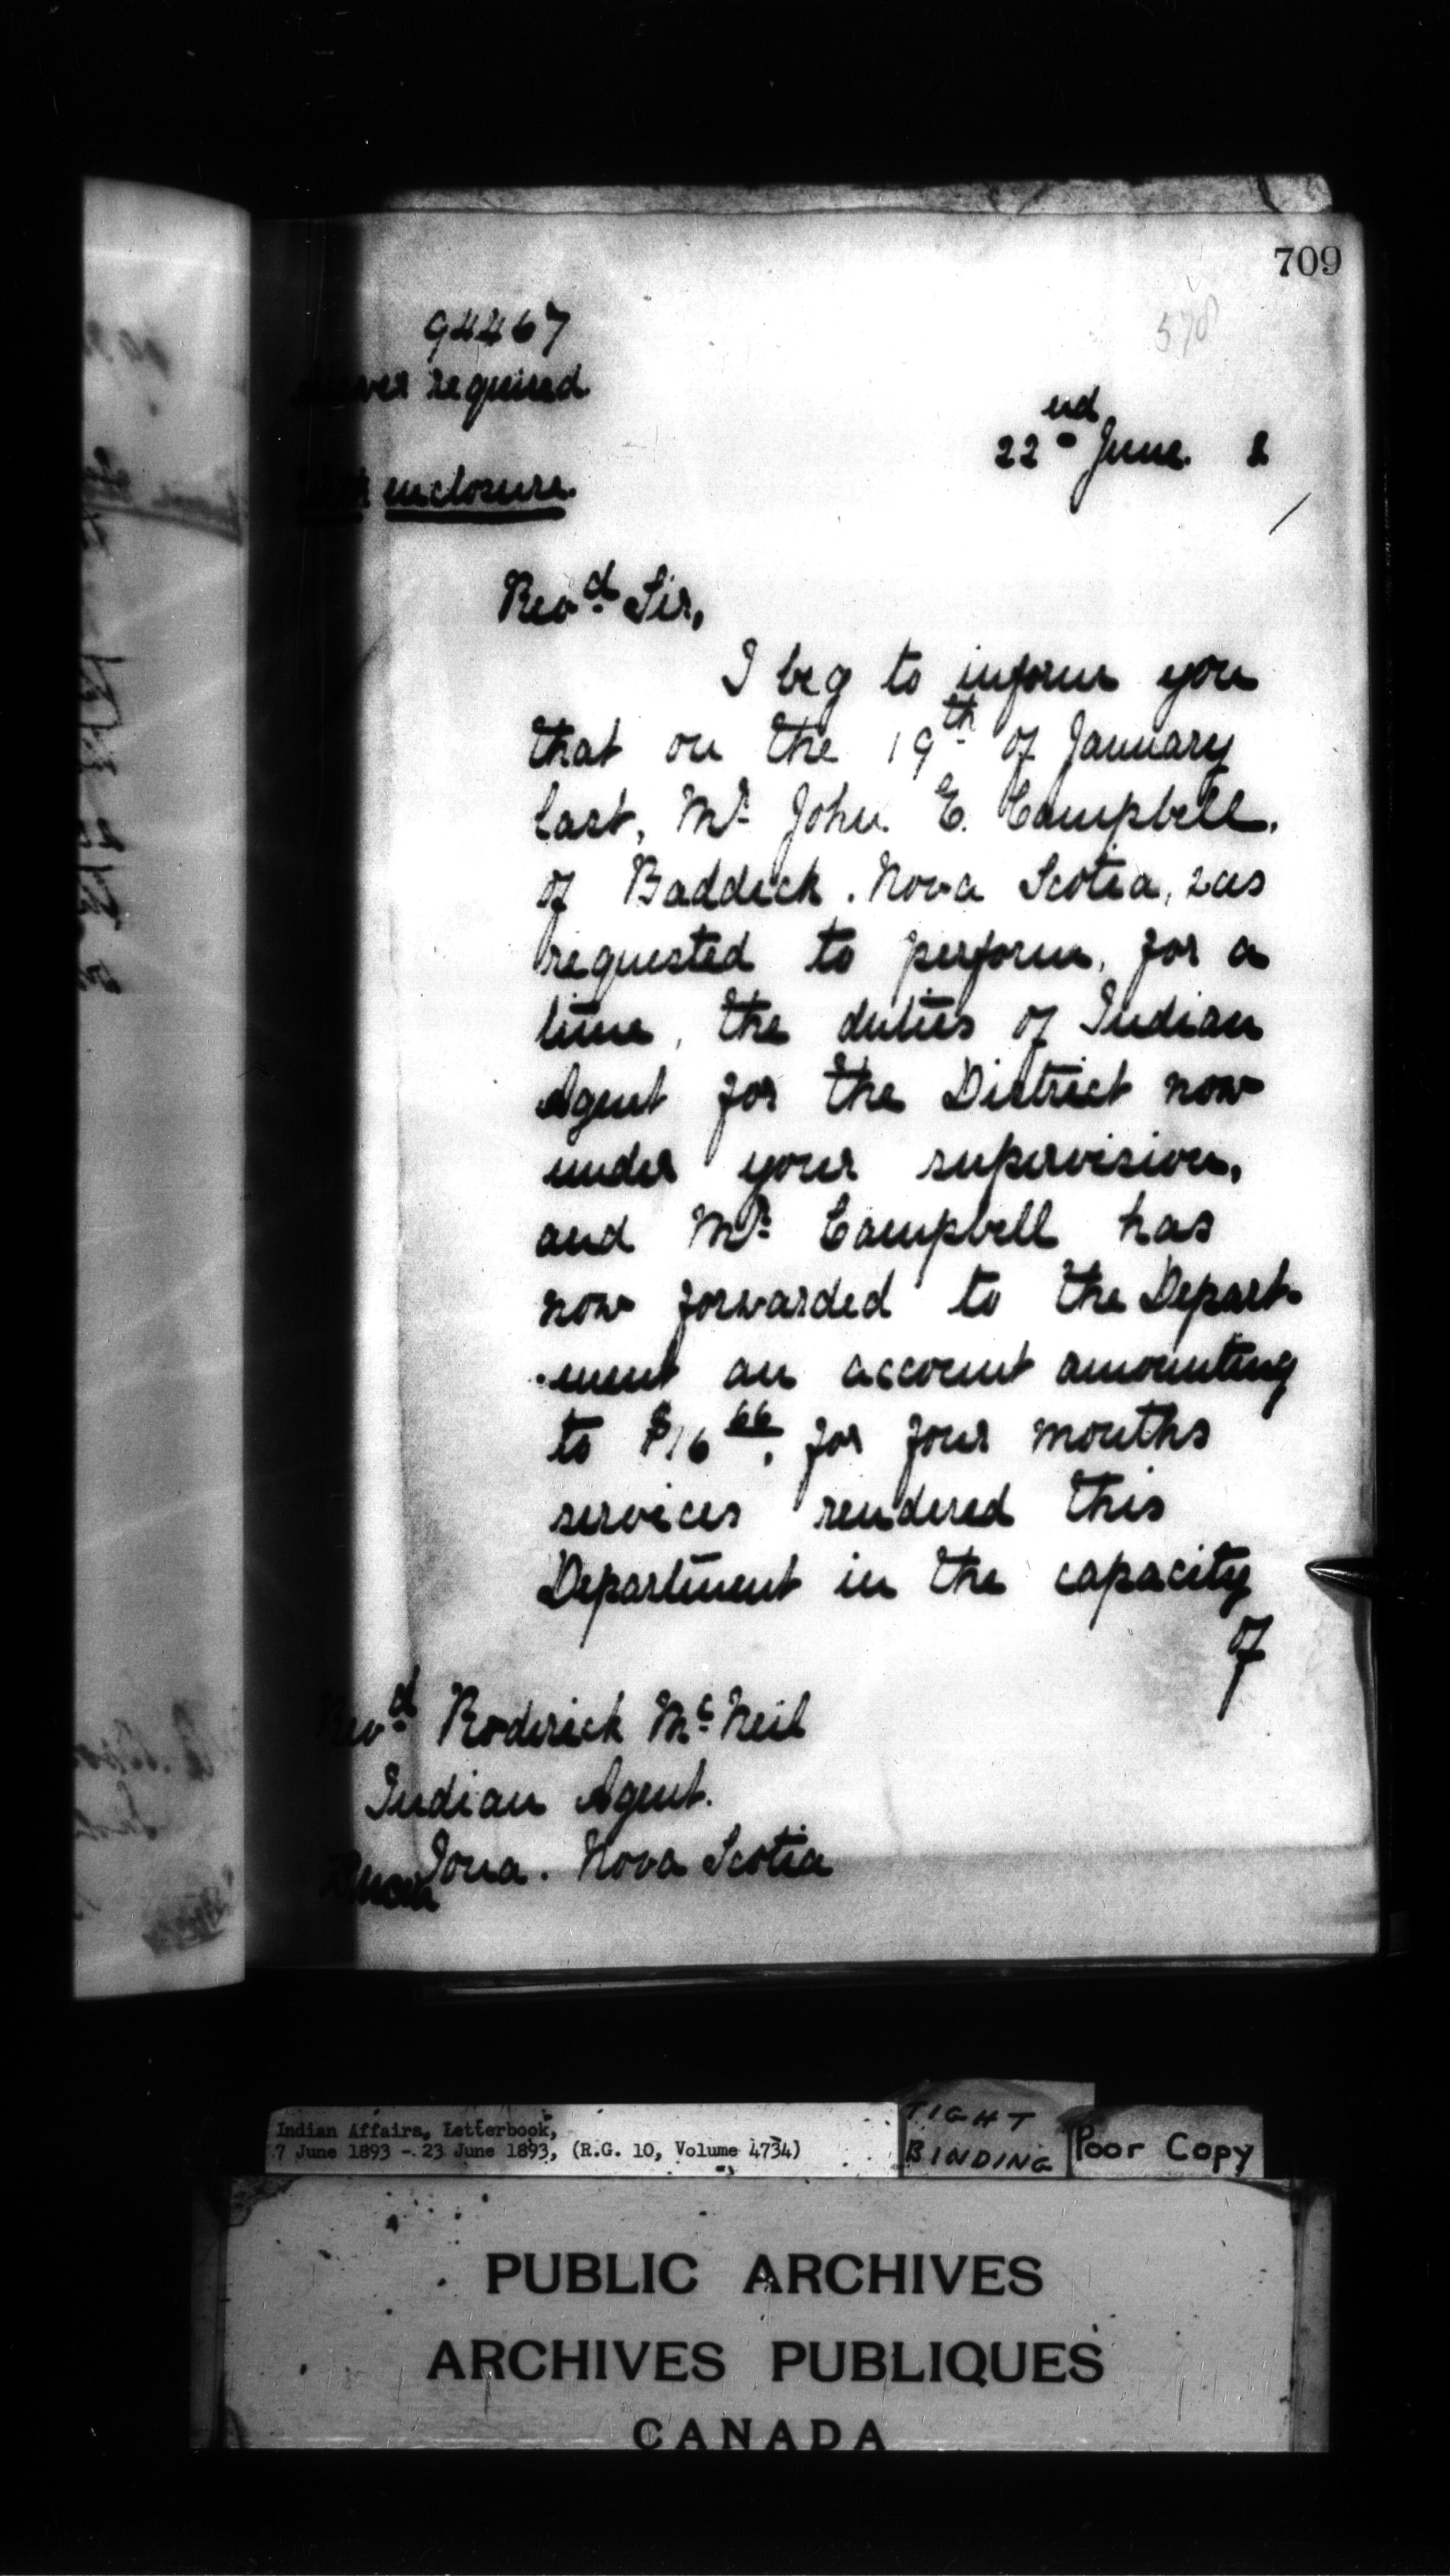 709
578
94467
Answer required
22nd June. 2
With enclosure.
Revd. Sir,
I beg to inform you
that on the 19th of January
last, Mr. John E. Campbell,
of Baddeck, Nova Scotia, was
requested to perform, for a
time, the duties of Indian
Agent for the District now
under your supervision,
and Mr. Campbell has
now forwarded to the Depart-
-ment an account amounting
to $16 66, for four months
services rendered this
Department in the capacity
of
Revd. Roderick McNeil
Indian Agent.
Iona. Nova Scotia
Indian Affairs, Letterbook,
7 June 1893 - 23 June 1893, (R.G. 10, Volume 4734)
TIGHT
BINDING
Poor Copy
PUBLIC ARCHIVES
ARCHIVES PUBLIQUES
CANADA